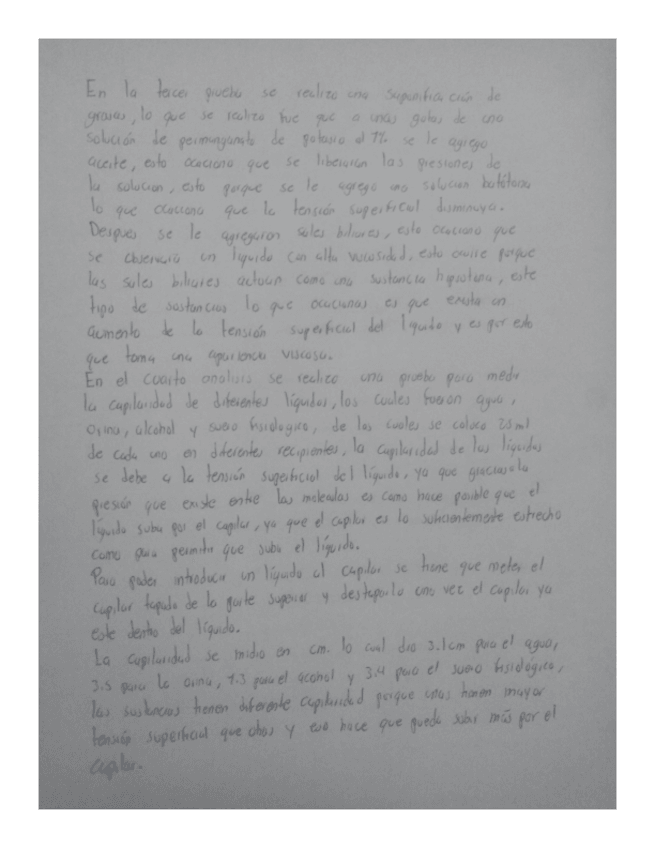 En la tercer prueba se realizo una saponificación de
grasas, lo que se realizo fue que a unas gotas de una
solución de permanganato de potasio al 1% se le agrego
aceite, esto ocaciono que se liberaran las presiones de
la solucion, esto porque se le agrego una solucion
lo que ocaciona que la tensión superficial disminuya.
Despues se le agregaron sales biliares, esto ocaciono que
se observara un líquido con alta viscosidad, esto ocurre porque
las sales biliares actuan como una sustancia hipotona, este
tipo de sustancias lo que ocacionas es que exista un
aumento de la tensión superficial del líquido y es por esto
que toma una apariencia viscosa.
En el cuarto analisis se realizo una prueba para medir
la capilaridad de diferentes líquidos, los cuales fueron agua,
orina, alcohol y suero fisiologico, de los cuales se coloco 25 ml
de cada uno en diferentes recipientes, la capilaridad de los líquidos
se debe a la tensión superficial del líquido, ya que gracias a la
presión que existe entre las moleculas es como hace posible que el
líquido suba por el capilar, ya que el capilar es lo suficientemente estrecho
como para permitir que suba el líquido.
Para poder introducir un líquido al capilar se tiene que meter el
capilar tapado de la parte superior y destaparlo una vez el capilar ya
este dentro del líquido.
La capilaridad se midio en cm. lo cual dio 3.1cm para el agua,
3.5 para la orina, 1.3 para el acohol y 3.4 para el suero fisiológico,
las sustancias tienen diferente capilaridad porque unas tienen mayor
tensión superficial que otras y eso hace que pueda subir más por el
capilar.